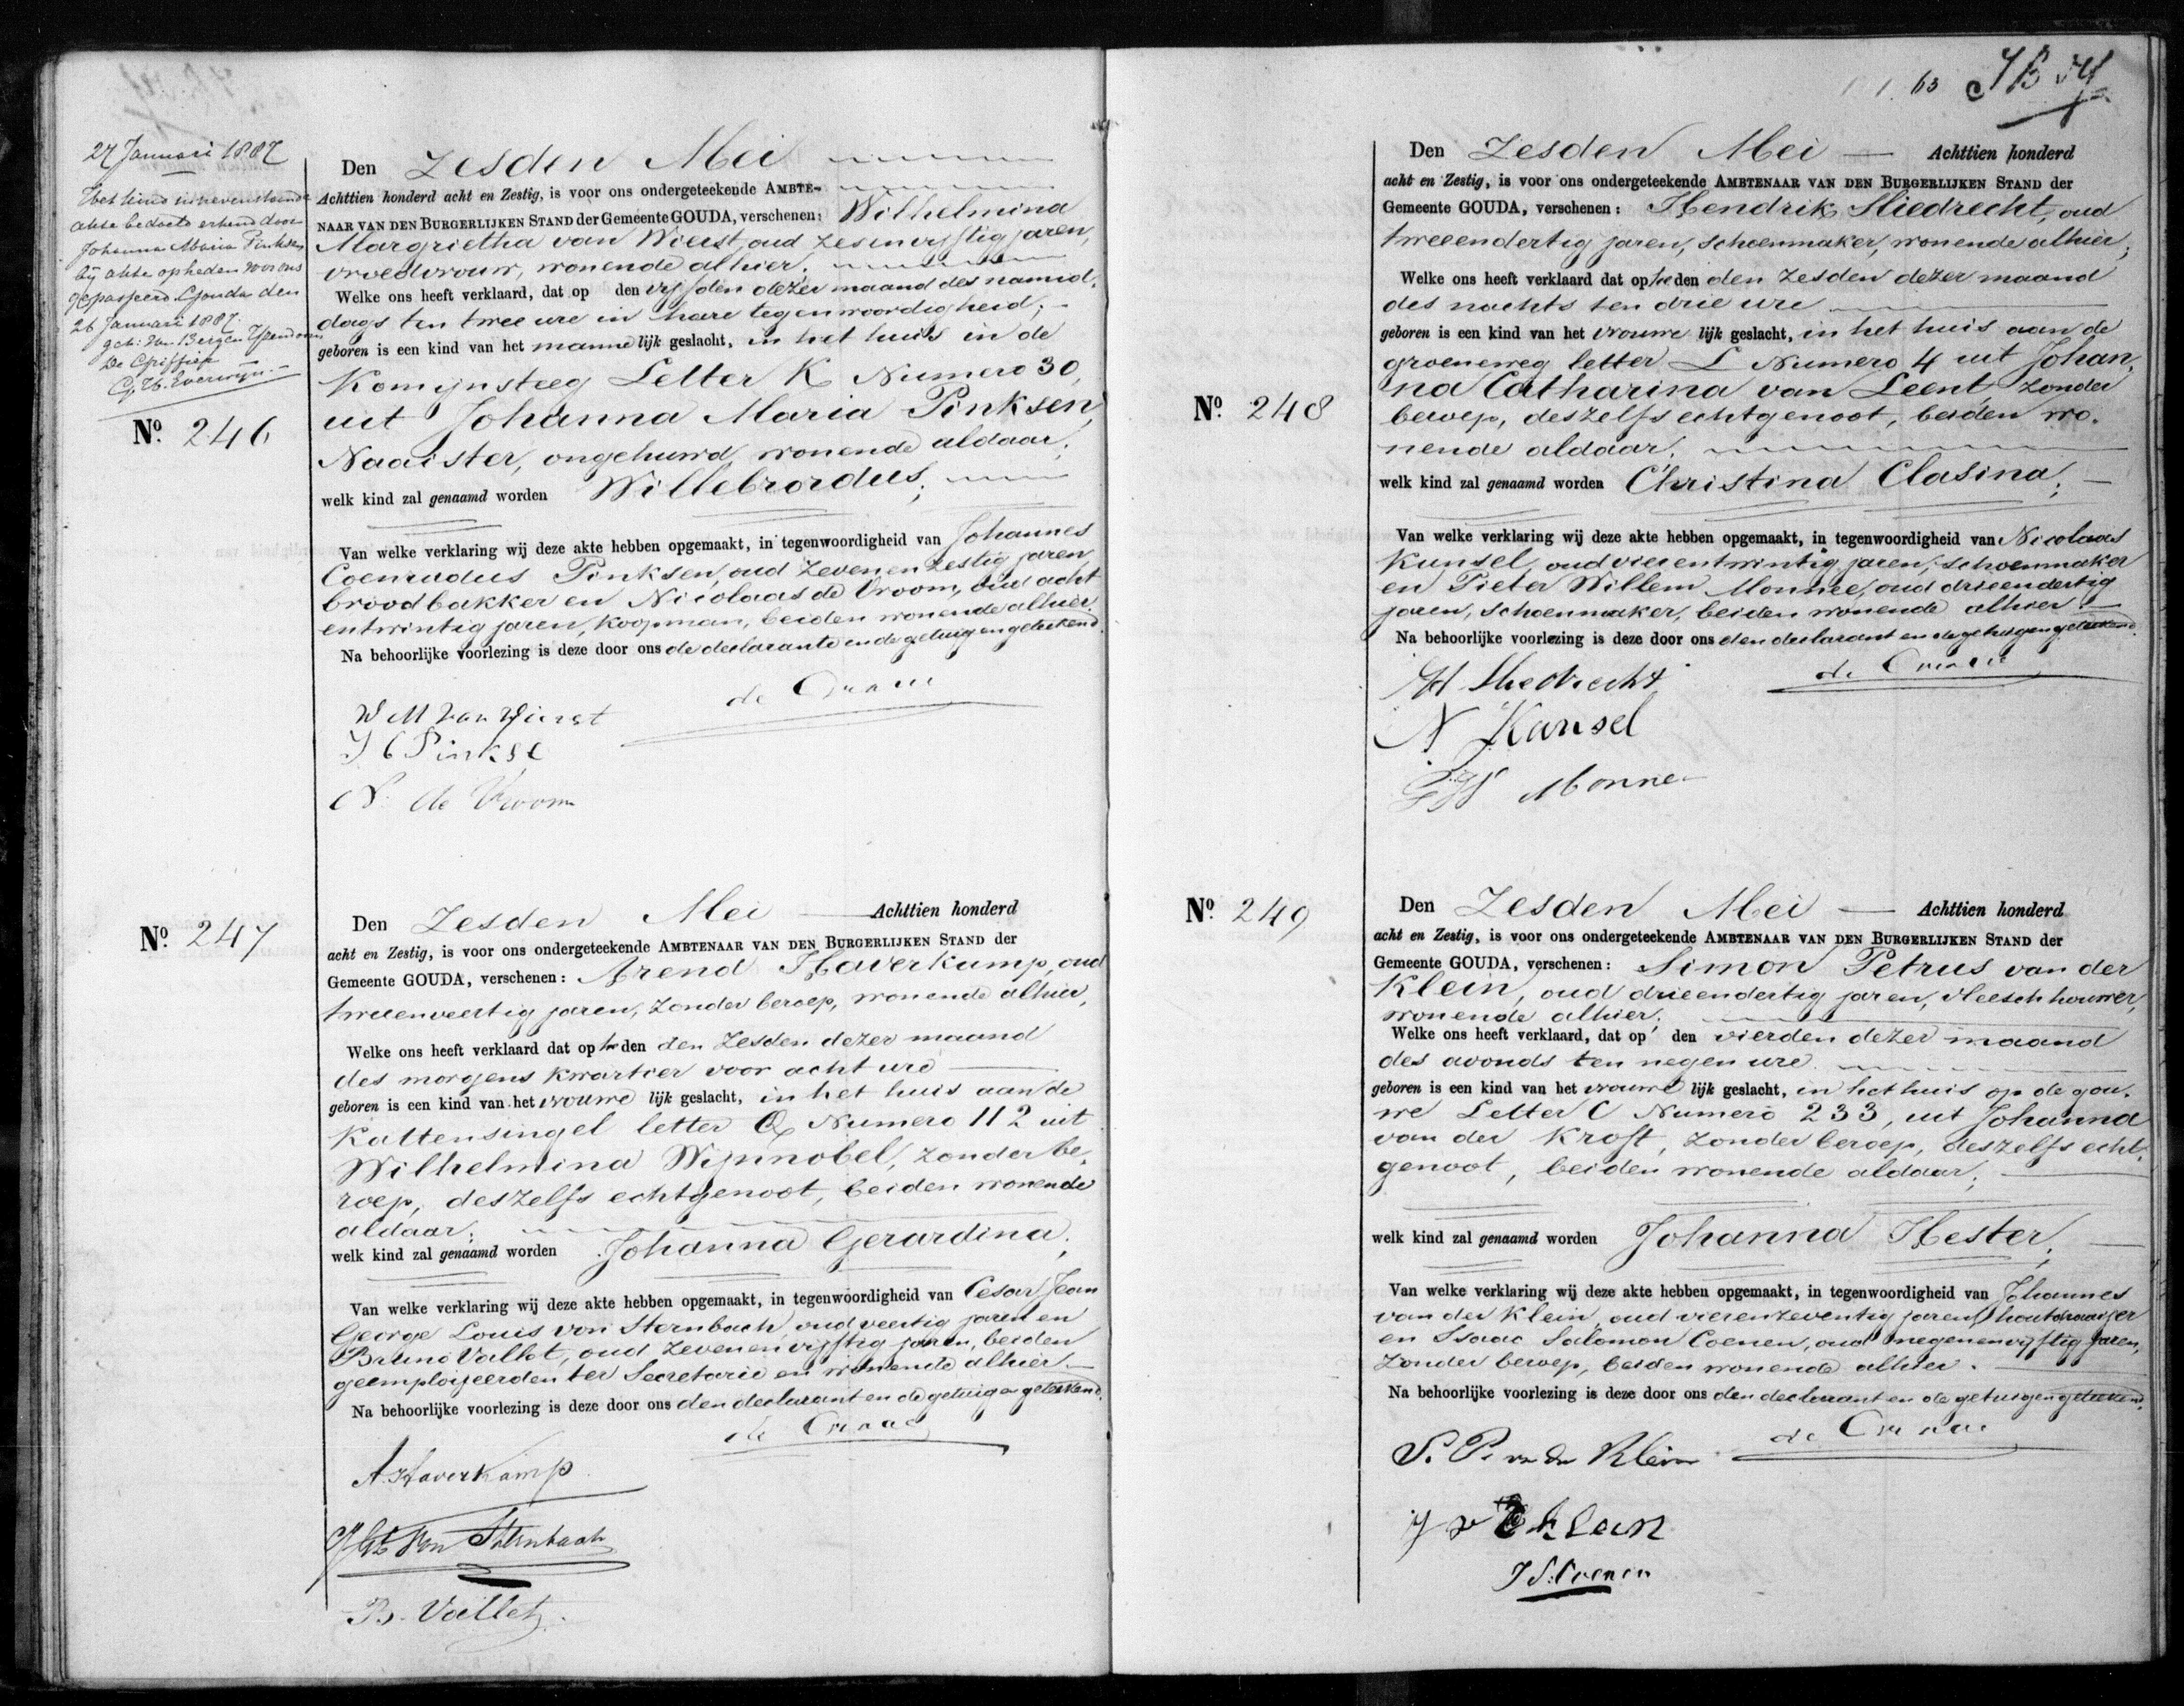 27 Januari 1887
Het kind in nevenstaande
akte bedoeld erkend door
Johanna Maria Pinksen
bij akte op heden voor ons
gepasseerd Gouda den
26 Januari 1887.
get: van Bergen IJzendoorn
De Griffier
Nº. 246
Den Zesden Mei
Achttien honderd acht en Zestig, is voor ons ondergeteekende AMBTE-
NAAR VAN DEN BURGERLIJKEN STAND der Gemeente GOUDA, verschenen: Wilhelmina
Margrietha van Wierst, oud zesenvijftig jaren,
vroedvrouw, wonende alhier.
Welke ons heeft verklaard, dat op den vijfden dezer maand des namid-
dags ten twee ure in hare tegenwoordigheid;
geboren is een kind van het mannelijk geslacht, in het huis in de
Komijnsteeg Letter K Numero 30,
uit Johanna Maria Pinksen,
Naaister, ongehuwd, wonende aldaar;
welk kind zal genaamd worden Willebrordus;
Van welke verklaring wij deze akte hebben opgemaakt, in tegenwoordigheid van Johannes
Coenradus Pinksen, oud zevenenzestig jaren,
broodbakker en Nicolaas de Vroom, oud acht
entwintig jaren, Koopman, beiden wonende alhier.
Na behoorlijke voorlezing is deze door ons de declarante en de getuigen geteekend.
W M van Wierst
J C Pinkse
N. de Vroom
Nº. 247
Den Zesden Mei — Achttien honderd
acht en Zestig, is voor ons ondergeteekende AMBTENAAR VAN DEN BURGERLIJKEN STAND der
Gemeente GOUDA, verschenen: Arend Haverkamp, oud
tweeenveertig jaren, zonder beroep, wonende alhier,
Welke ons heeft verklaard dat op heden den zesden dezer maand
des morgens kwartier voor acht ure
geboren is een kind van het vrouwelijk geslacht, in het huis aan de
Kattensingel letter Q Numero 112 uit
Wilhelmina Wijnnobel, zonder be-
roep, deszelfs echtgenoot, beiden wonende
aldaar;
welk kind zal genaamd worden Johanna Gerardina;
Van welke verklaring wij deze akte hebben opgemaakt, in tegenwoordigheid van Cesar Jean
George Louis von Sternbach, oud veertig jaren en
Bruno Vallet, oud zevenenvijftig jaren, beiden
geemploijeerden ter Secretarie en wonende alhier.
Na behoorlijke voorlezing is deze door ons den declarant en de getuigen geteekend.
A. Haverkamp
von Sternbach
B. Vallet.
63
Nº. 248
Den Zesden Mei — Achttien honderd
acht en Zestig, is voor ons ondergeteekende AMBTENAAR VAN DEN BURGERLIJKEN STAND der
Gemeente GOUDA, verschenen: Hendrik Sliedrecht, oud
tweeendertig jaren, schoenmaker, wonende alhier;
Welke ons heeft verklaard dat op heden den zesden dezer maand
des nachts ten drie ure
geboren is een kind van het vrouwelijk geslacht, in het huis aan de
groeneweg letter L Numero 4 uit Johan-
na Catharina van Leent, zonder
beroep, deszelfs echtgenoot, beiden wo-
nende aldaar;
welk kind zal genaamd worden Christina Clasina;
Van welke verklaring wij deze akte hebben opgemaakt, in tegenwoordigheid van Nicolaas
Kunsel, oud vierentwintig jaren, schoenmaker
en Pieter Willem Monnee, oud drieendertig
jaren, schoenmaker, beiden wonende alhier
Na behoorlijke voorlezing is deze door ons den declarant en de getuigen geteekend.
H Sliedrecht
N Kansel
PW Monnee
Nº. 249
Den Zesden Mei — Achttien honderd
acht en Zestig, is voor ons ondergeteekende AMBTENAAR VAN DEN BURGERLIJKEN STAND der
Gemeente GOUDA, verschenen: Simon Petrus van der
Klein, oud drieendertig jaren, vleeschhouwer,
wonende alhier.
Welke ons heeft verklaard, dat op den vierden dezer maand
des avonds ten negen ure
geboren is een kind van het vrouwelijk geslacht, in het huis op de gou-
we Letter C Numero 233, uit Johanna
van der Kroft, zonder beroep, deszelfs echt-
genoot, beiden wonende aldaar;
welk kind zal genaamd worden Johanna Hester;
Van welke verklaring wij deze akte hebben opgemaakt, in tegenwoordigheid van Johannes
van der Klein, oud vierenzeventig jaren,
en Isaac Salomon Coenen, oud negenenvijftig jaren,
zonder beroep, beiden wonende alhier.
Na behoorlijke voorlezing is deze door ons den declarant en de getuigen geteekend.
S. P. van der Klein
J v d klein
J S. Coenen